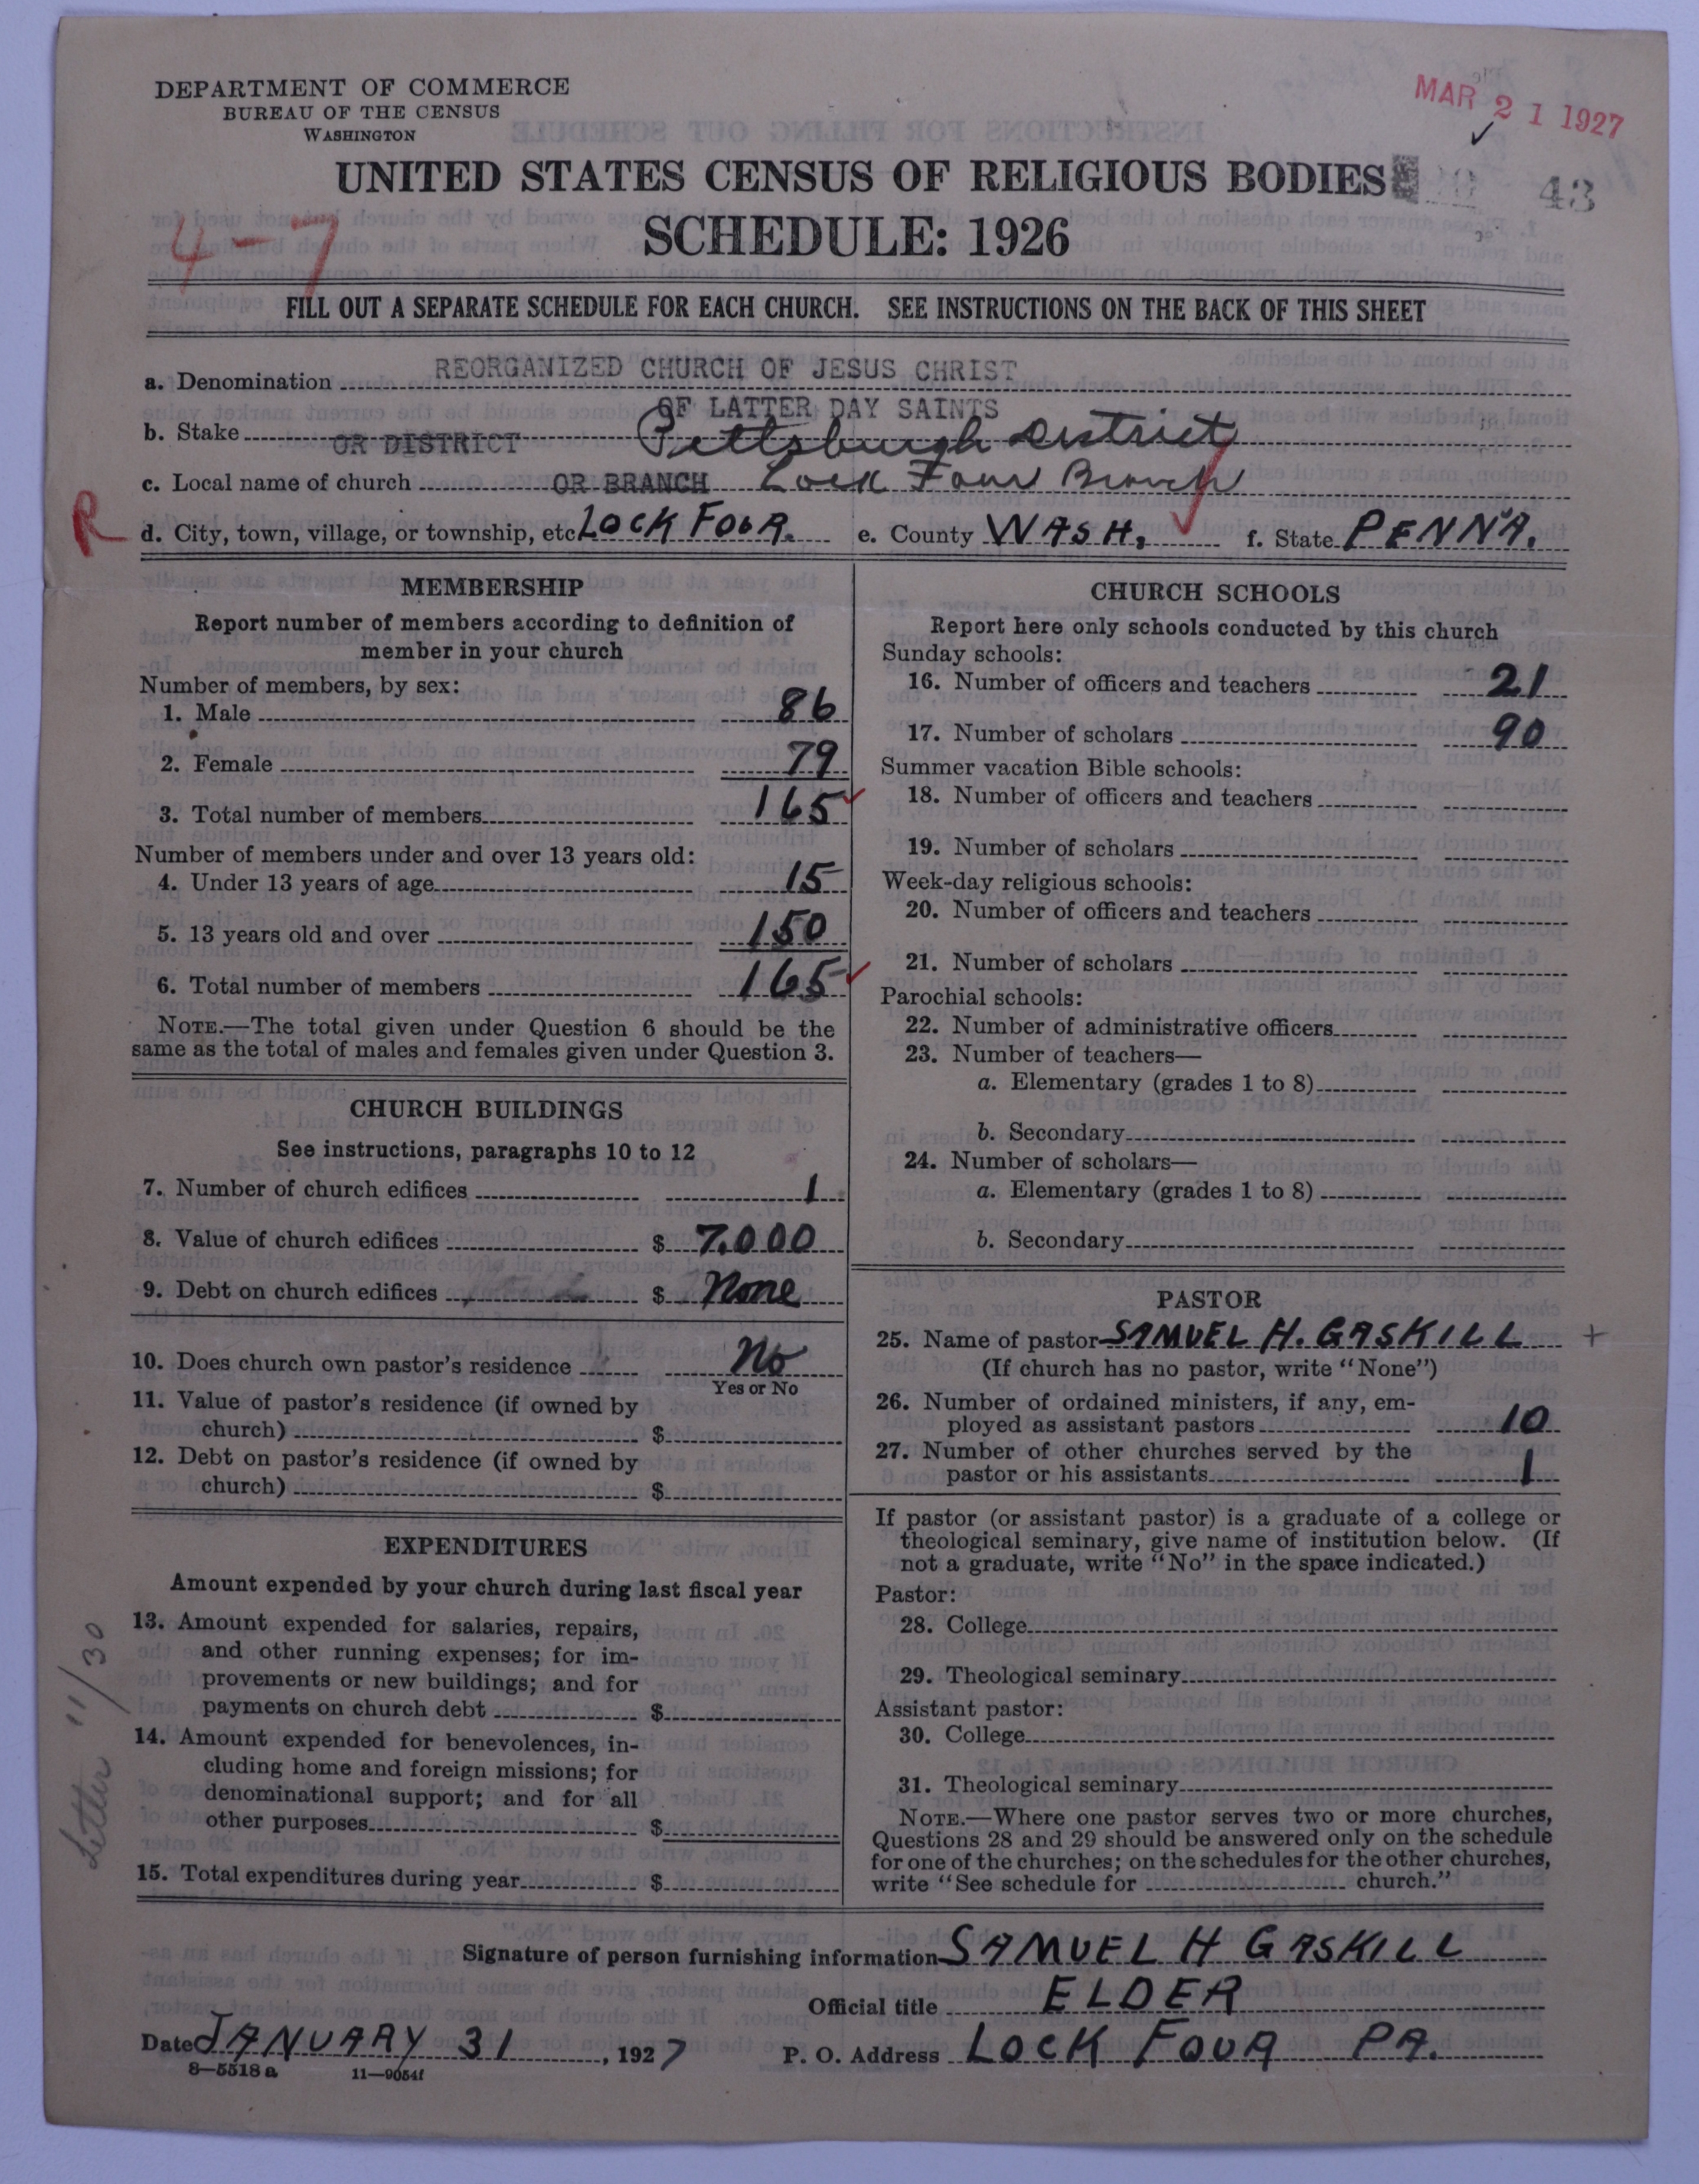 DEPARTMENT OF COMMERCE
BUREAU OF THE CENSUS
WASHINGTON
MAR 21 1927
UNITED STATES CENSUS OF RELIGIOUS BODIES
43
SCHEDULE: 1926
4-7
FILL OUT A SEPARATE SCHEDULE FOR EACH CHURCH. SEE INSTRUCTIONS ON THE BACK OF THIS SHEET
a. Denomination REORGANIZED CHURCH OF JESUS CHRIST
OF LATTER DAY SAINTS
b. Stake OR DISTRICT Pittsburgh District
c. Local name of church OR BRANCH Lock Four Branch
R
d. City, town, village, or township, etc. LOCK FOUR. e. County WASH, f. State PENN'A.
MEMBERSHIP
Report number of members according to definition of
member in your church
Number of members, by sex:
1. Male 86
2. Female 79
3. Total number of members 165
Number of members under and over 13 years old:
4. Under 13 years of age 15
5. 13 years old and over 150
6. Total number of members 165
NOTE.—The total given under Question 6 should be the
same as the total of males and females given under Question 3.
CHURCH BUILDINGS
See instructions, paragraphs 10 to 12
7. Number of church edifices 1
8. Value of church edifices $ 7.000
9. Debt on church edifices $ None
10. Does church own pastor's residence No
Yes or No
11. Value of pastor's residence (if owned by
church) $
12. Debt on pastor's residence (if owned by
church) $
EXPENDITURES
Amount expended by your church during last fiscal year
13. Amount expended for salaries, repairs,
and other running expenses; for im-
provements or new buildings; and for
payments on church debt $
14. Amount expended for benevolences, in-
cluding home and foreign missions; for
denominational support; and for all
other purposes $
15. Total expenditures during year $
Letter 11/30
CHURCH SCHOOLS
Report here only schools conducted by this church
Sunday schools:
16. Number of officers and teachers 21
17. Number of scholars 90
Summer vacation Bible schools:
18. Number of officers and teachers
19. Number of scholars
Week-day religious schools:
20. Number of officers and teachers
21. Number of scholars
Parochial schools:
22. Number of administrative officers
23. Number of teachers—
a. Elementary (grades 1 to 8)
b. Secondary
24. Number of scholars—
a. Elementary (grades 1 to 8)
b. Secondary
PASTOR
25. Name of pastor SAMUEL H. GASKILL +
(If church has no pastor, write "None")
26. Number of ordained ministers, if any, em-
ployed as assistant pastors 10
27. Number of other churches served by the
pastor or his assistants 1
If pastor (or assistant pastor) is a graduate of a college or
theological seminary, give name of institution below. (If
not a graduate, write "No" in the space indicated.)
Pastor:
28. College
29. Theological seminary
Assistant pastor:
30. College
31. Theological seminary
NOTE.—Where one pastor serves two or more churches,
Questions 28 and 29 should be answered only on the schedule
for one of the churches; on the schedules for the other churches,
write "See schedule for church."
Signature of person furnishing information SAMUEL H GASKILL
Official title ELDER
Date JANUARY 31, 1927 P. O. Address LOCK FOUR PA.
8—5518 a 11—9054f